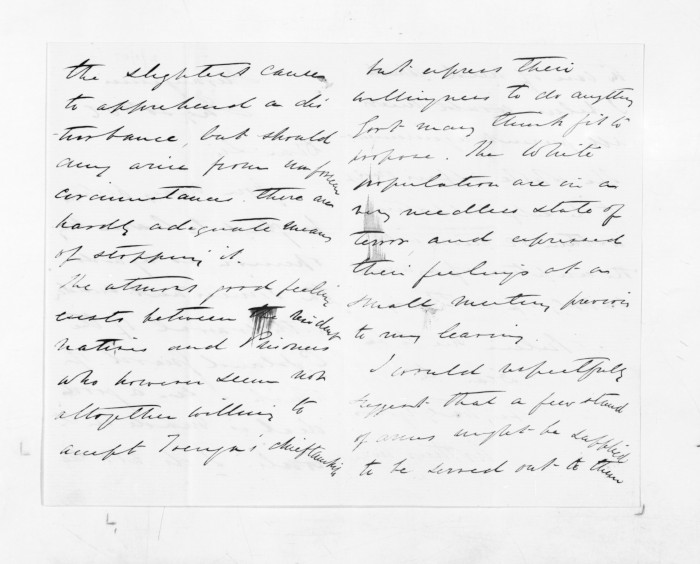 the slightest cause
to apprehend a dis
-turbance, but should
any arise from unforseen
circumstances there are
hardly adequate means
of stopping it.
The utmost good feeling
exists between the resident
natives and Prisoners
who however seem not
altogether willing to
accept chieftainship
but express their
willingness to do anything
Govt may think fit to
propose. The White
population are in a
very needless state of
terror, and expressed
their feelings at a
small meeting previous
to my leaving.
I would respectfully
suggest that a few stand
of arms might be supplied
to be served out to them